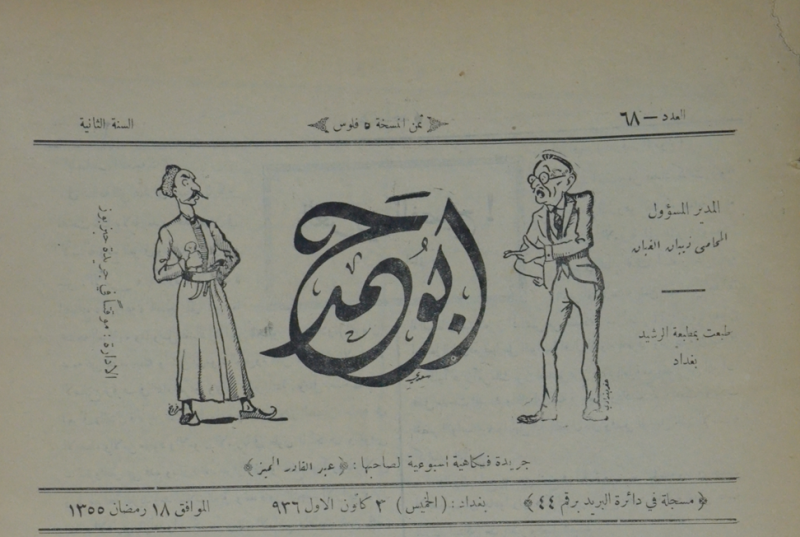 العدد — ٦٨
ثمن النسخة ٥ فلوس
السنة الثانية
المدير المسؤول
المحامي ذيبان الغبان
طبعت بمطبعة الرشيد
بغداد
ابو حمد
الادارة: موقتاً في جريدة حبزبوز
جريدة فكاهية أسبوعية لصاحبها: ﴿عبد القادر المميز﴾
﴿مسجلة في دائرة البريد برقم ٤٤﴾
بغداد: (الخميس) ٣ كانون الاول ٩٣٦
الموافق ١٨ رمضان ١٣٥٥